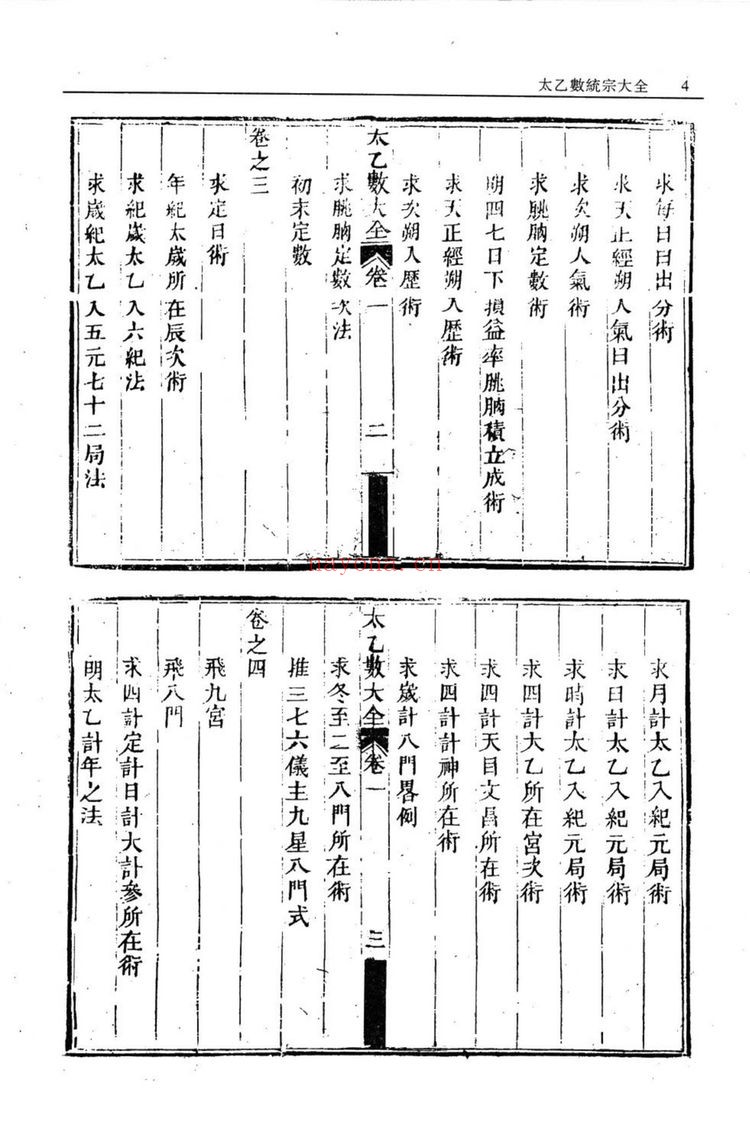 太乙數統宗大全 4
求每日日出分術
求天正經朔入氣日出分術
求次朔入氣術
求朓朒定數術
明四七日下損益率朓朒積立成術
求天正經朔入歷術
求次朔入歷術
太乙數大全 卷一 二
求朓朒定數次法
初末定數
卷之三
求定日術
年紀太歲所在辰次術
求紀歲太乙入六紀法
求歲紀太乙入五元七十二局法
nayona.cn
求月計太乙入紀元局術
求日計太乙入紀元局術
求時計太乙入紀元局術
求四計太乙所在宮次術
求四計天目文昌所在術
求四計計神所在術
求歲計八門畧例
太乙數大全 卷一 三
求冬至二至八門所在術
推三七六儀主九星八門式
卷之四
飛九宮
飛八門
求四計定計日計大計參所在術
明太乙計年之法